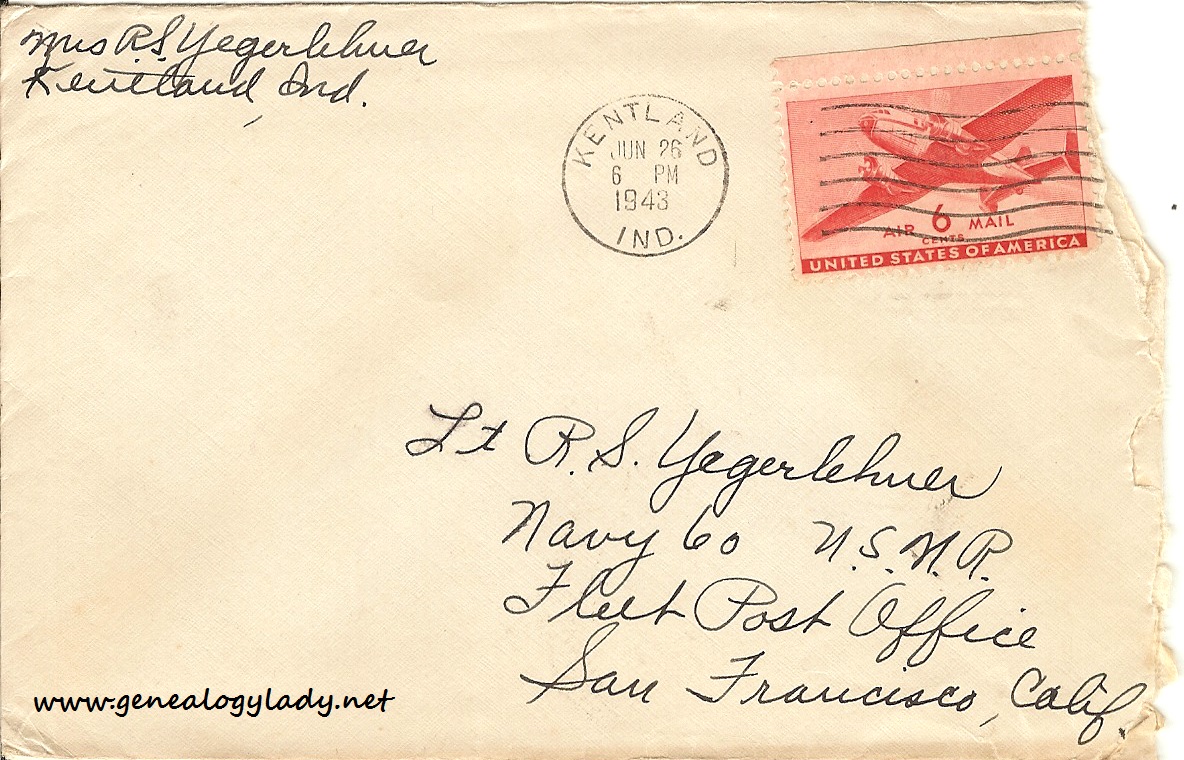 Mrs R.S. Yegerlehner
Kentland, Ind.
KENTLAND
JUN 26
6 PM
1943
IND.
AIR 6 MAIL
CENTS
UNITED STATES OF AMERICA
Lt R.S. Yegerlehner
Navy 60 U.S.N.R.
Fleet Post Office
San Francisco, Calif.
www.genealogylady.net